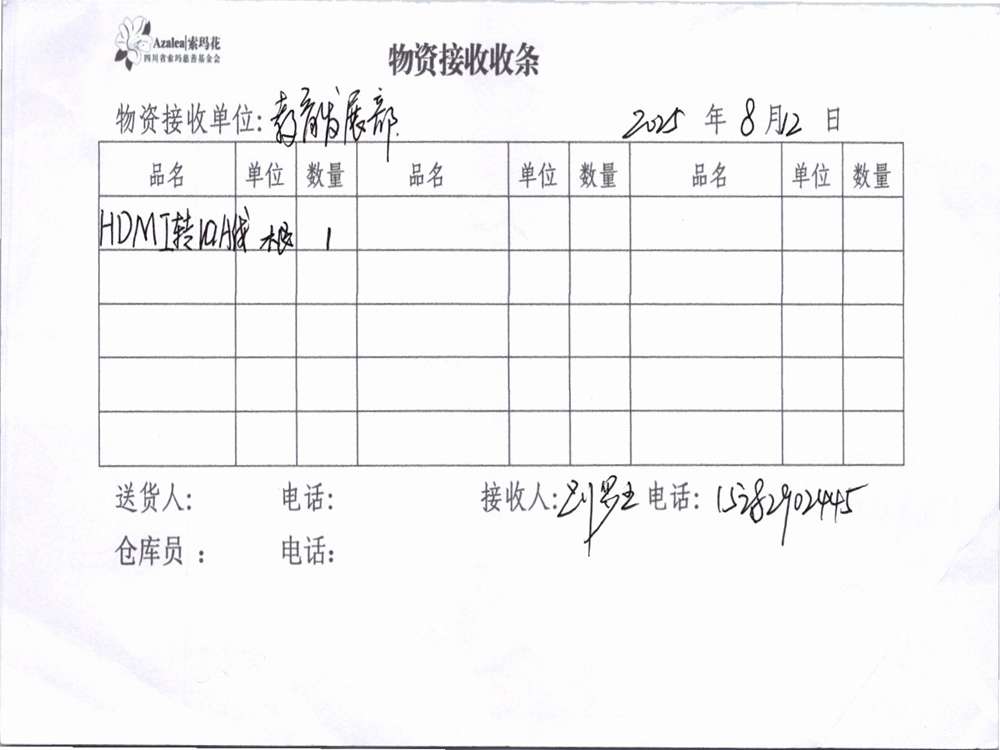 Azalea|索玛花
四川省索玛慈善基金会
物资接收收条
物资接收单位: 教育发展部 2025 年 8 月 12 日
品名 单位 数量 品名 单位 数量 品名 单位 数量
HDMI转 线 根 1
送货人: 电话: 接收人: 刘 电话: 15282902445
仓库员 : 电话: